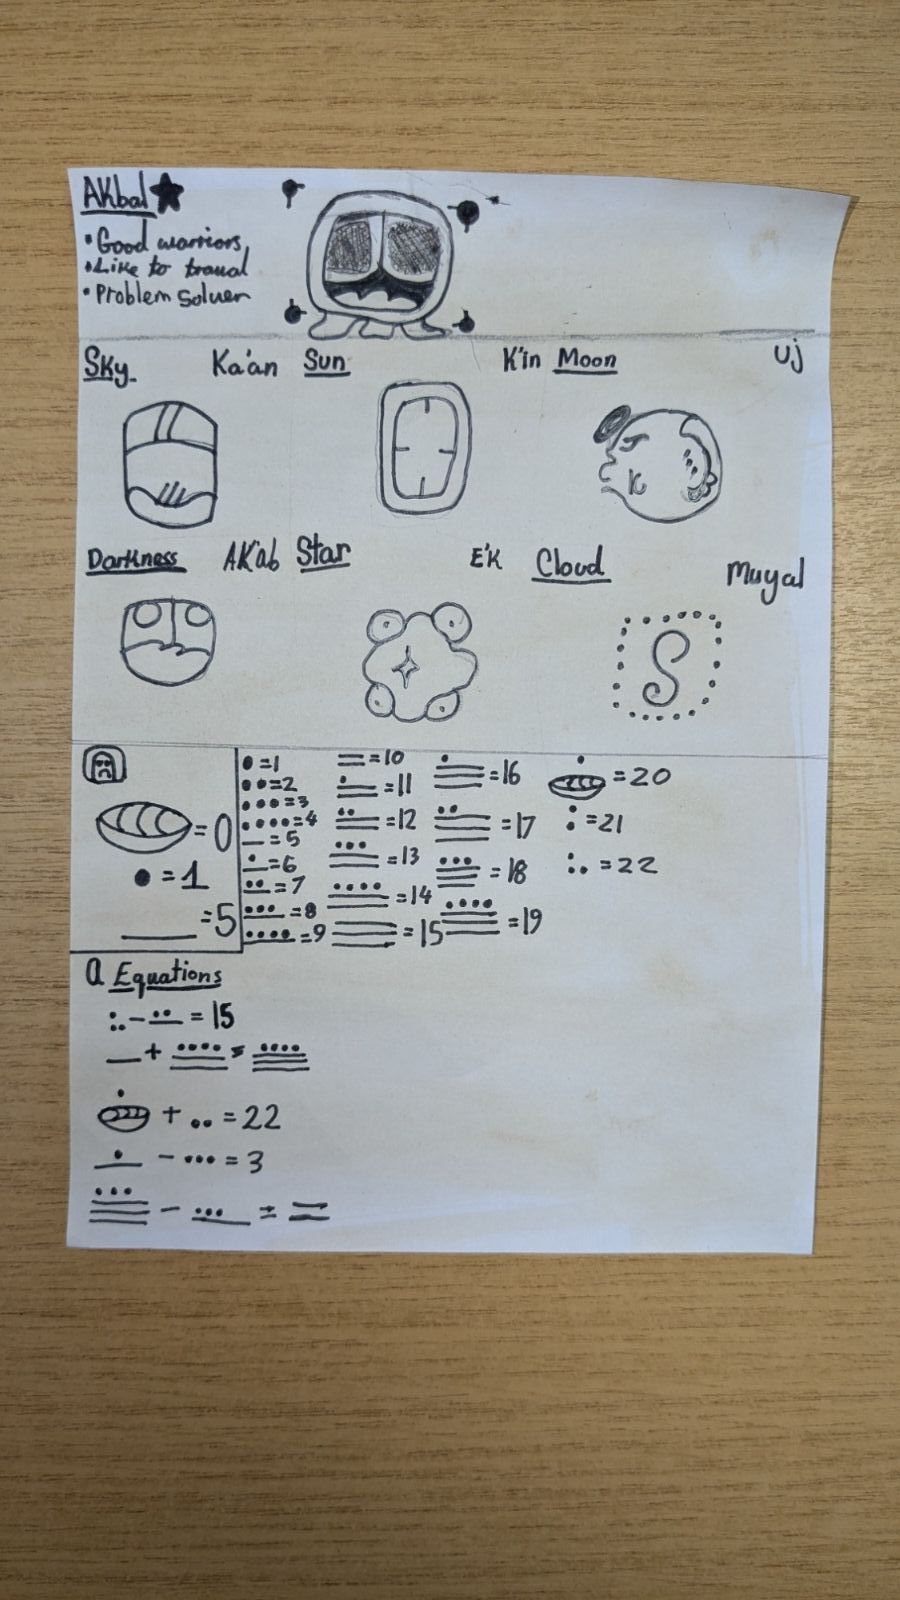 AKbal
• Good warriors
• Like to traval
• Problem soluer
Sky Ka'an Sun K'in Moon Uj
Darkness AK'ab Star E'K Cloud Muyal
= 0
• = 1
__ = 5
• = 1
•• = 2
••• = 3
•••• = 4
= 5
= 6
= 7
= 8
= 9
= 10
= 11
= 12
= 13
= 14
= 15
= 16
= 17
= 18
= 19
= 20
= 21
= 22
Equations
- = 15
+ =
+ •• = 22
- ••• = 3
- =